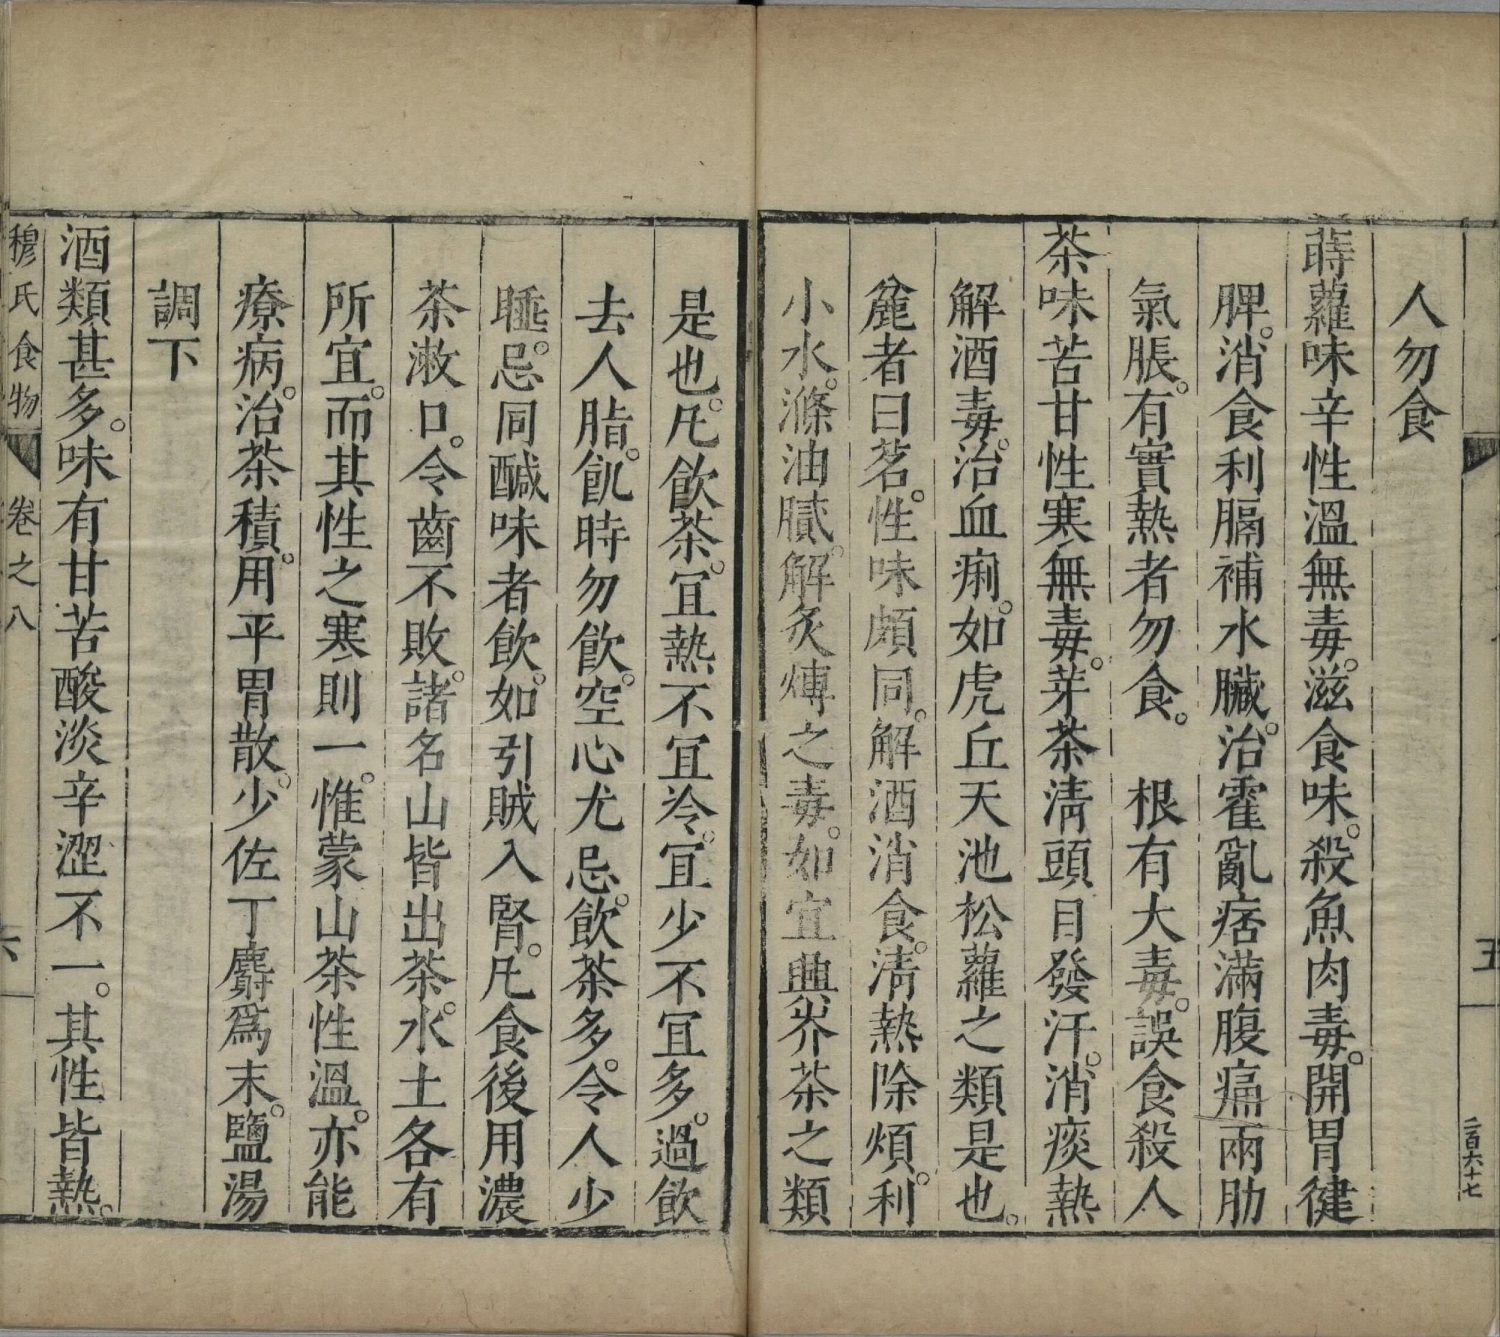 五
二百六十七
人勿食
蒔蘿味辛性溫無毒。滋食味。殺魚肉毒。開胃健
脾。消食利膈補水臟。治霍亂痞滿腹痛兩肋
氣脹。有實熱者勿食。　根有大毒。誤食殺人
茶味苦甘性寒無毒。芽茶淸頭目發汗。消痰熱
解酒毒。治血痢。如虎丘天池松蘿之類是也。
麄者曰茗。性味頗同。解酒消食。淸熱除煩。利
小水。滌油膩。解炙煿之毒。如宜興岕茶之類
是也。凡飲茶。宜熱不宜冷。宜少不宜多。過飲
去人脂。飢時勿飲。空心尤忌。飲茶多。令人少
睡。忌同醎味者飲。如引賊入腎。凡食後用濃
茶漱口。令齒不敗。諸名山皆出茶。水土各有
所宜。而其性之寒則一。惟蒙山茶性溫。亦能
療病。治茶積。用平胃散。少佐丁麝爲末。鹽湯
調下
酒類甚多。味有甘苦酸淡辛澀不一。其性皆熱。
穆氏食物　卷之八
六